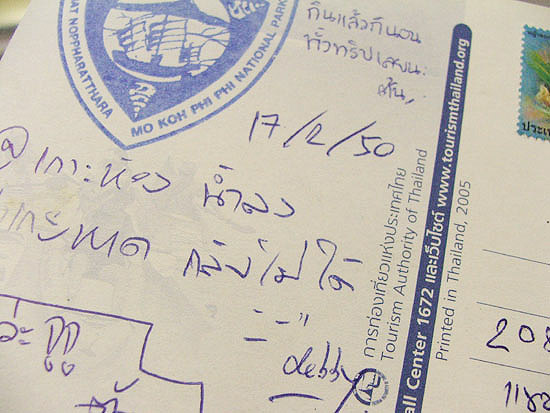 AT NOPPHARATTHARA
MO KOH PHI PHI NATIONAL PARK
กินแล้วก็นอน
ทั้งทริปเลยนะ
17/2/50
@ เกาะห้อง น้ำลง
กลับไม่ได้
debby
การท่องเที่ยวแห่งประเทศไทย
Tourism Authority of Thailand
all Center 1672 และเว็บไซต์ www.tourismthailand.org
Printed in Thailand, 2005
ประเท
208